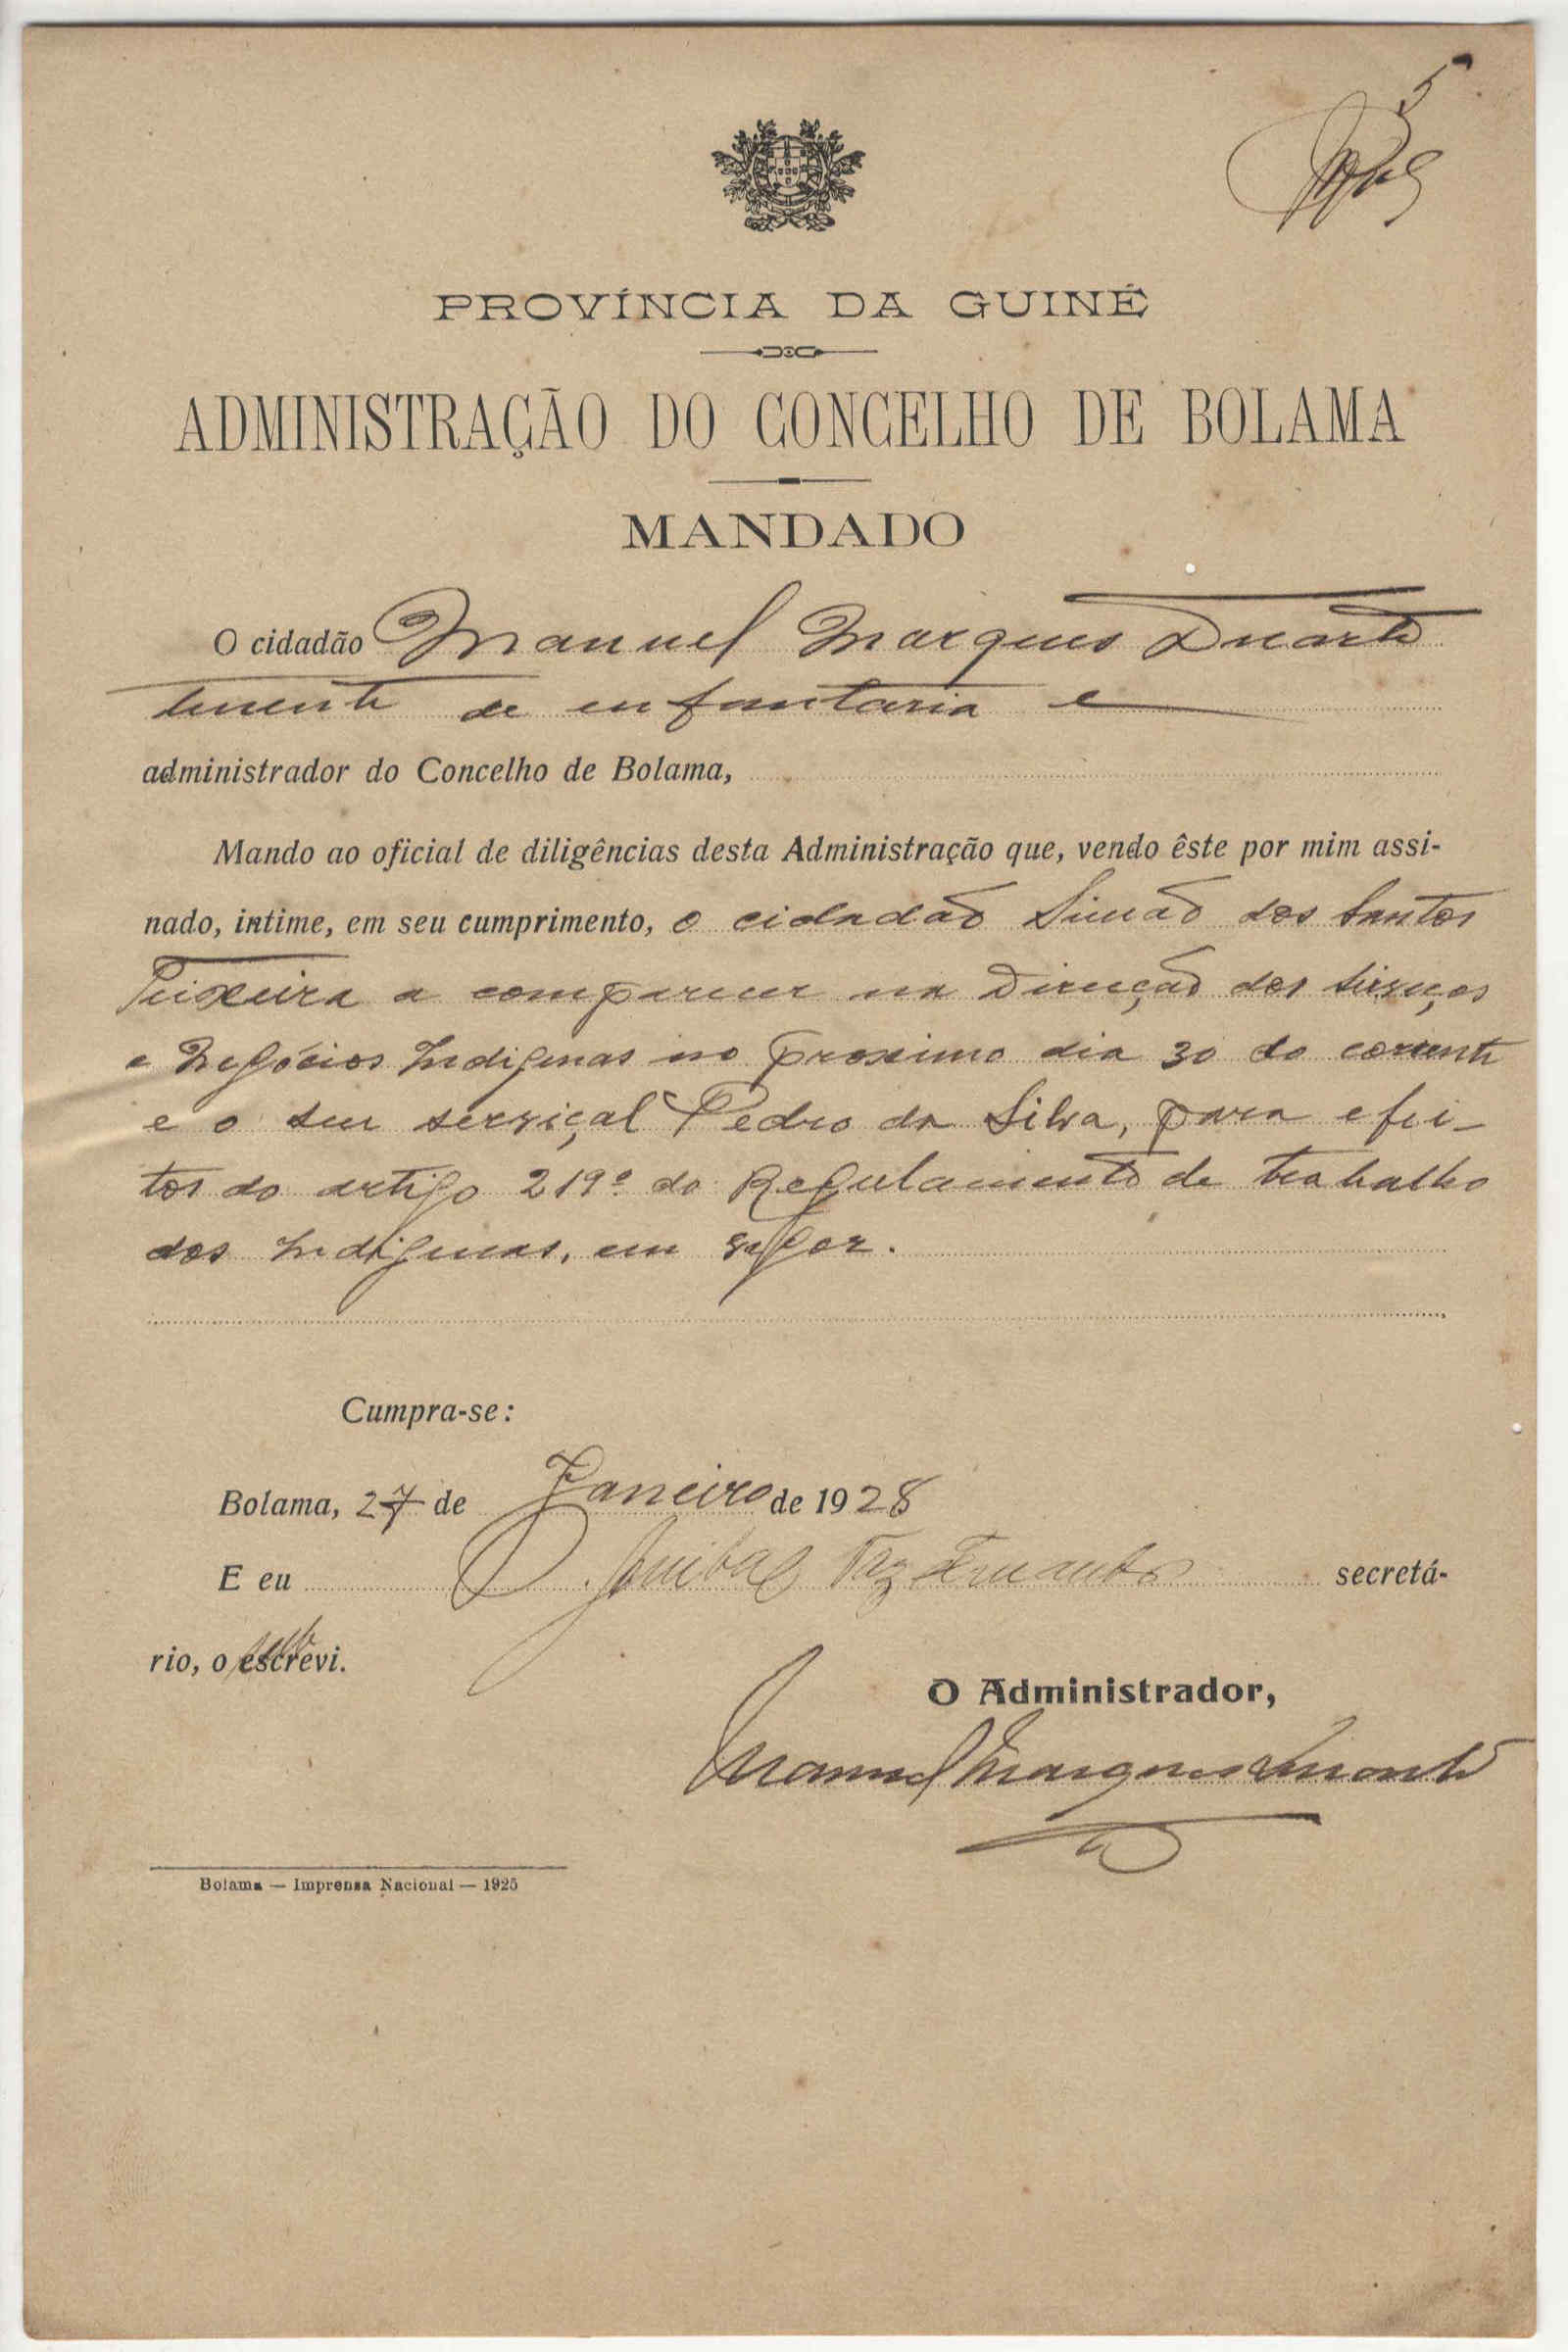 5
PROVÍNCIA DA GUINÉ
ADMINISTRAÇÃO DO CONCELHO DE BOLAMA
MANDADO
O cidadão Manuel Marques Duarte
tenente de infantaria e
administrador do Concelho de Bolama,
Mando ao oficial de diligências desta Administração que, vendo êste por mim assi-
nado, intime, em seu cumprimento, o cidadão Simão dos Santos
Teixeira a comparecer na Direcção dos Serviços
e Negócios Indigenas no proximo dia 30 do corrente
e o seu serviçal Pedro da Silva, para efei-
tos do artigo 219º do Regulamento de trabalho
dos Indigenas, em vigor.
Cumpra-se:
Bolama, 27 de Janeiro de 1928
E eu Anibal Vaz Fernandes secretá-
rio, o escrevi.
O Administrador,
Manuel Marques Duarte
Bolama — Imprensa Nacional — 1925